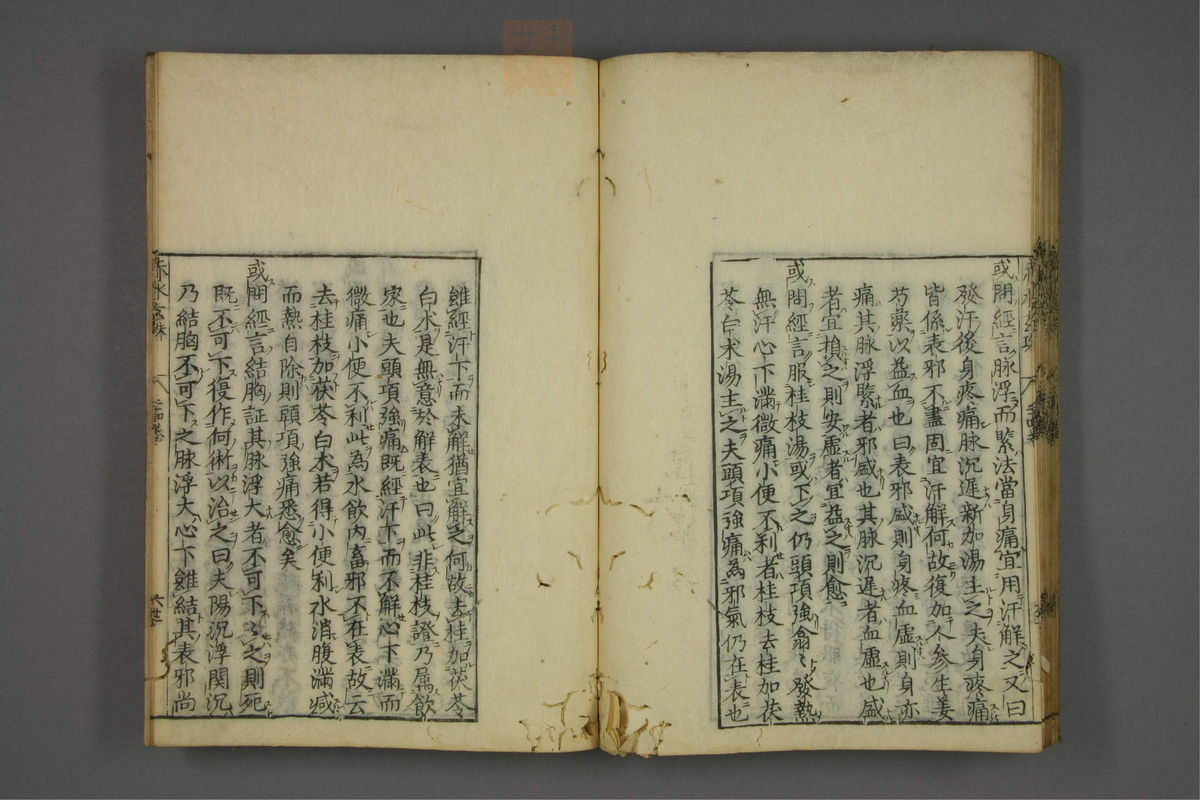 或問經言脉浮而緊法當身痛宜用汗解之又曰
發汗後身疼痛脉沉遲新加湯主之夫身疼痛
皆係表邪不盡固宜汗解何故復加人參生姜
芍藥以益血也曰表邪盛則身疼血虛則身亦
痛其脉浮緊者邪盛也其脉沉遲者血虛也盛
者宜損之則安虛者宜益之則愈
或問經言服桂枝湯或下之仍頭項強翕〻發熱
無汗心下滿微痛小便不利者桂枝去桂加茯
苓白朮湯主之夫頭項強痛為邪氣仍在表也
雖經汗下而未解猶宜解之何故去桂加茯苓
白朮是無意於解表也曰此非桂枝證乃屬飲
家也夫頭項強痛既經汗下而不解心下滿而
微痛小便不利此為水飲内畜邪不在表故云
去桂枝加茯苓白朮若得小便利水消腹滿減
而熱自除則頭項強痛悉愈矣
或問經言結胸証其脉浮大者不可下〻之則死
既不可下復作何術以治之曰夫陽沉浮関沉
乃結胸不可下之脉浮大心下雖結其表邪尚
赤水玄珠